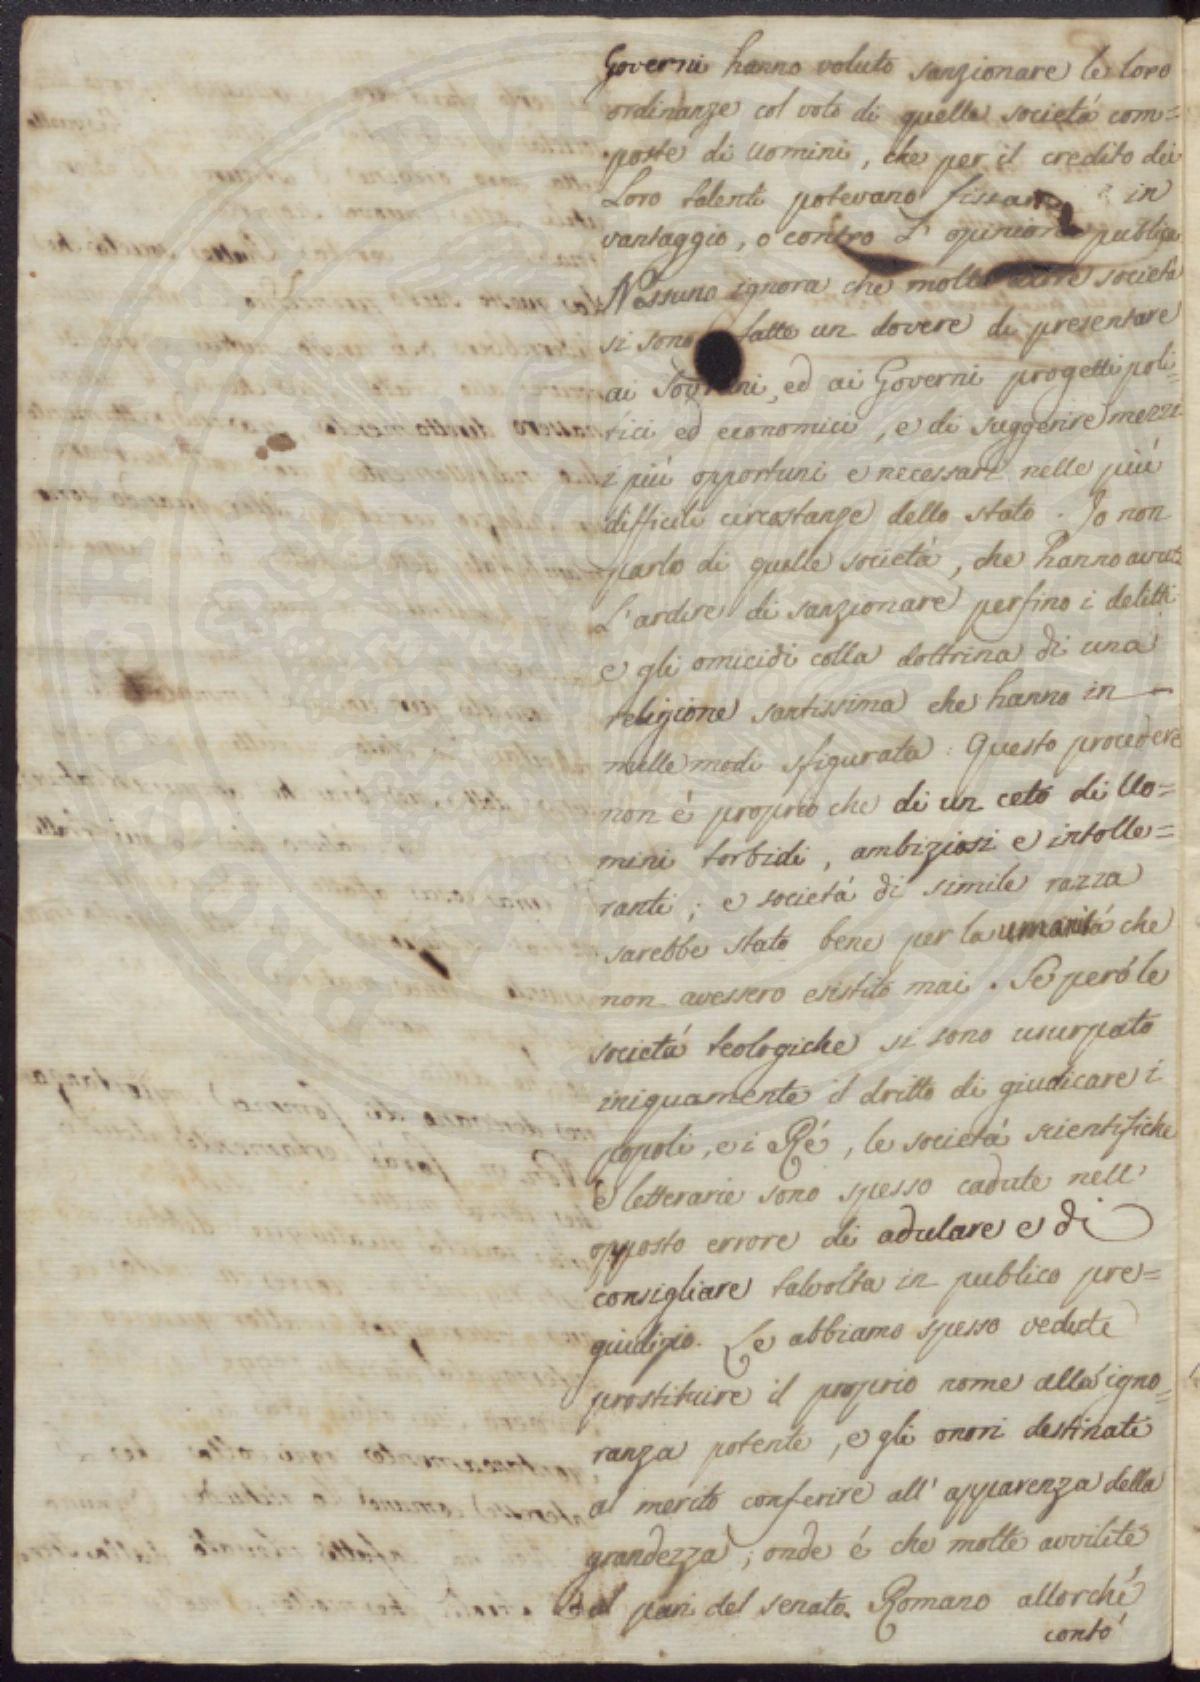 Governi hanno voluto sanzionare le loro
ordinanze col voto di quelle societá com=
poste di Uomini, che per il credito dei
Loro talenti potevano fissare in
vantaggio, o contro L'opinione publica
Nessuno ignora che molte altre societá
si sono fatte un dovere di presentare
ai Sovrani, ed ai Governi progetti poli=
tici ed economici, e di suggerire mezzi
i piú opportuni e necessari nelle piú
difficili circostanze dello stato. Io non
parlo di quelle societá, che hanno avuto
L'ardire di sanzionare perfino i delitti
e gli omicidi colla dottrina di una
religione santissima che hanno in
mille modi sfigurata: Questo procedere
non é proprio che di un ceto di Uo=
mini torbidi, ambiziosi e intolle=
ranti; e societá di simile razza
sarebbe stato bene per la umanitá che
non avessero esistito mai. Se peró le
societá teologiche si sono usurpato
iniquamente il dritto di giudicare i
popoli, e i Ré, le societá scientifiche
e letterarie sono spesso cadute nell'
opposto errore di adulare e di
consigliare talvolta in publico pre=
giudizio. Le abbiamo spesso vedute
prostituire il proprio nome alla igno=
ranza potente, e gli onori destinati
al merito conferire all'apparenza della
grandezza; onde é che molte avvilite
al pari del senato Romano allorché
contó